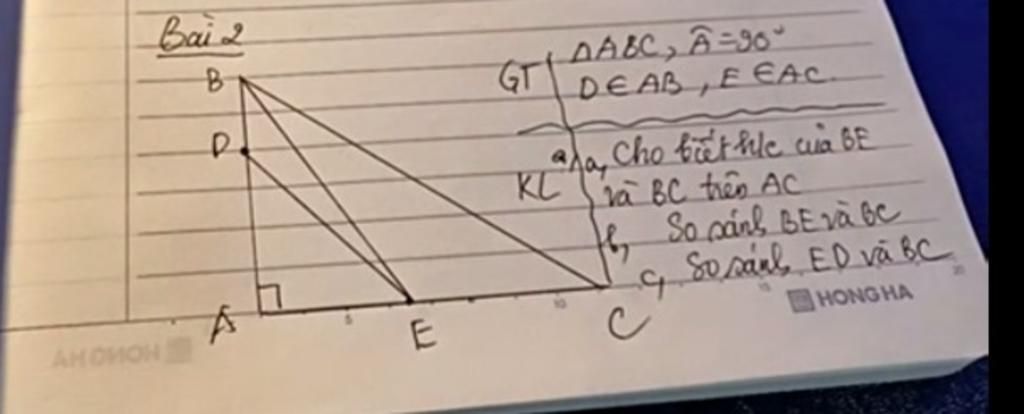 Bài 2
B
D
A
E
C
GT
ΔABC, Â=90°
D∈AB, E∈AC.
KL
a, a, Cho biết h/c của BE
và BC trên AC
b, So sánh BE và BC
c, So sánh ED và BC
5
10
15
20
HONG HA
HONG HA